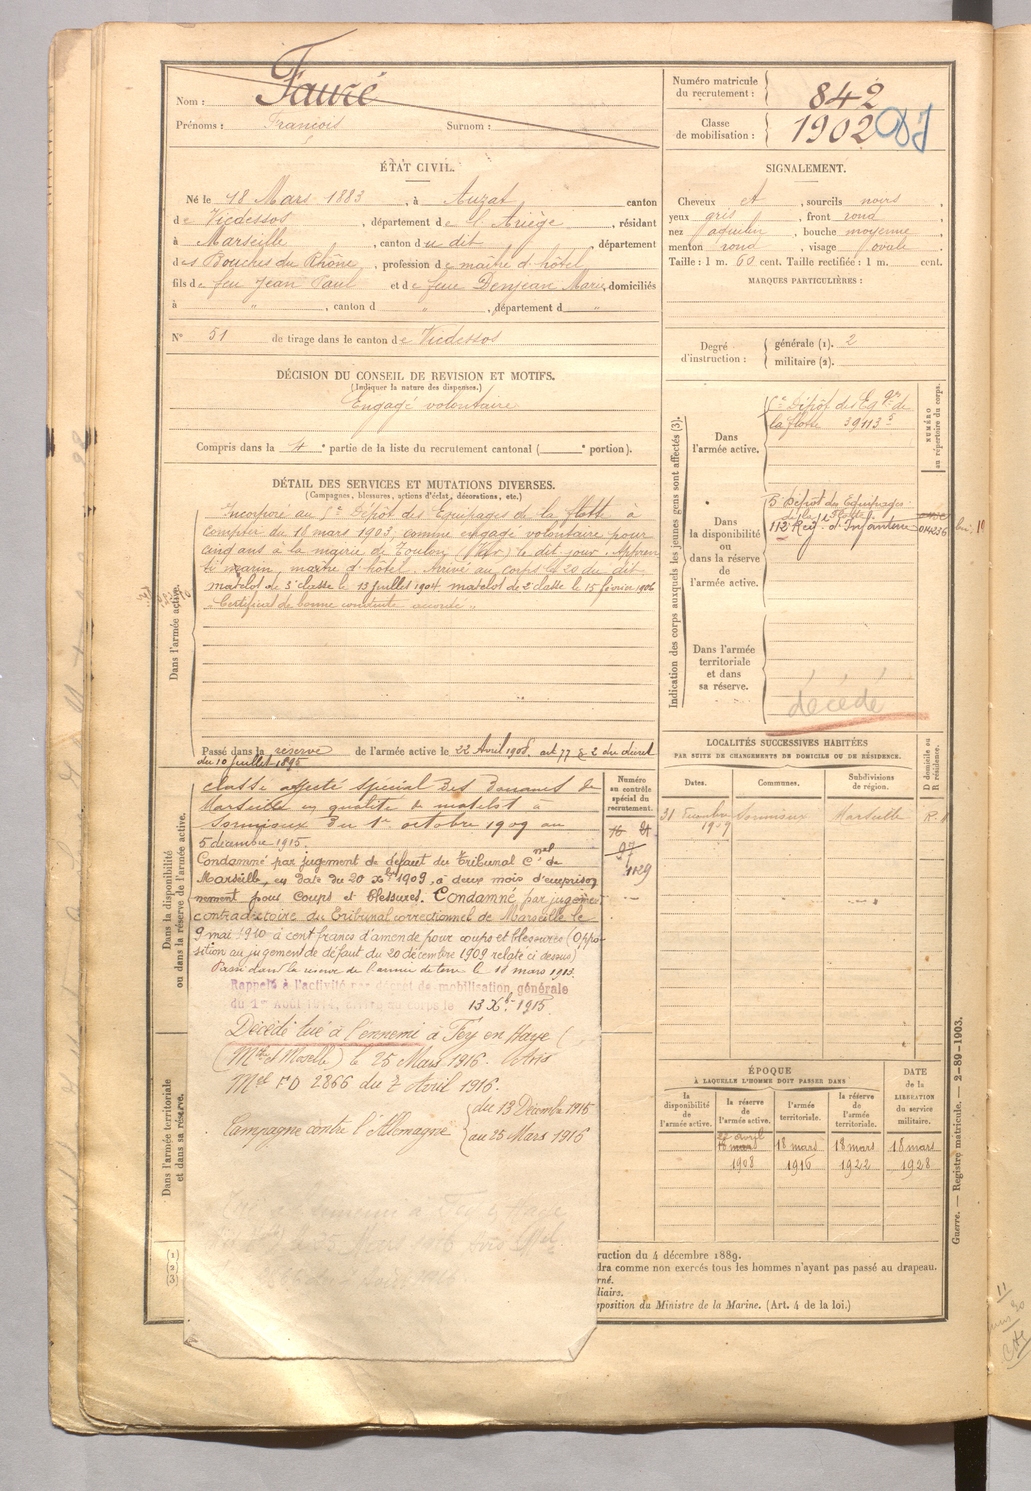 Nom : Fauré
Prénoms : François Surnom :
Numéro matricule du recrutement : 842
Classe de mobilisation : 1902
ÉTAT CIVIL.
Né le 18 Mars 1883, à Auzat canton
de Vicdessos, département de l'Ariège, résidant
à Marseille, canton du dit, département
des Bouches du Rhône, profession de maître d'hôtel
fils de feu Jean Paul et de feue Denjean Marie, domiciliés
à " , canton d " , département d "
N° 51 de tirage dans le canton de Vicdessos
SIGNALEMENT.
Cheveux et , sourcils noirs ,
yeux gris , front rond ,
nez aquilin , bouche moyenne ,
menton rond , visage ovale .
Taille : 1 m. 60 cent. Taille rectifiée : 1 m. cent.
MARQUES PARTICULIÈRES :
Degré d'instruction : générale (1). 2
militaire (2).
DÉCISION DU CONSEIL DE REVISION ET MOTIFS.
(Indiquer la nature des dispenses.)
Engagé volontaire
Compris dans la 4e partie de la liste du recrutement cantonal ( e portion).
DÉTAIL DES SERVICES ET MUTATIONS DIVERSES.
(Campagnes, blessures, actions d'éclat, décorations, etc.)
Dans l'armée active.
Incorporé au 5e Dépôt des Equipages de la flotte à
compter du 18 mars 1903, comme engagé volontaire pour
cinq ans à la mairie de Toulon (Var) le dit jour. Appren
ti marin, maître d'hôtel. Arrivé au corps le 20 du dit
matelot de 3e classe le 13 juillet 1904. matelot de 2e classe le 15 février 1906
"Certificat de bonne conduite accordé"
Passé dans la réserve de l'armée active le 22 Avril 1908. art 77 § 2 du décret
du 10 juillet 1895
Dans la disponibilité ou dans la réserve de l'armée active.
Classé affecté spécial des Douanes de
Marseille en qualité de matelot à
Sormioux du 1er octobre 1909 au
5 décembre 1915.
Condamné par jugement de défaut du Tribunal Cnel de
Marseille, en date du 20 Xbre 1909, à deux mois d'emprison
nement pour coups et blessures. Condamné par jugemt
contradictoire du Tribunal correctionnel de Marseille le
9 mai 1910 à cent francs d'amende pour coups et blessures (Oppo
sition au jugement de défaut du 20 décembre 1909 relaté ci dessus)
Passé dans la réserve de l'armée de terre le 18 mars 1913.
Rappelé à l'activité par décret de mobilisation générale
du 1er Août 1914, arrivé au corps le 13 Xbre 1915
Décédé tué à l'ennemi à Fey en Haye
(Mthe et Moselle) le 25 Mars 1916. Avis
Mel FD 2866 du 7 Avril 1916.
Campagne contre l'Allemagne { du 13 Décembre 1915
au 25 Mars 1916
Dans l'armée territoriale et dans sa réserve.
(1)
(2)
(3)
Numéro au contrôle spécial du recrutement.
1129
Indication des corps auxquels les jeunes gens sont affectés (3).
NUMÉRO au répertoire du corps.
Dans l'armée active.
5e Dépôt des Eqges de
la flotte 39113 5
Dans la disponibilité ou dans la réserve de l'armée active.
5e Dépôt des Equipages
de la Flotte
112 Reg. d'Infanterie
Dans l'armée territoriale et dans sa réserve.
décédé
LOCALITÉS SUCCESSIVES HABITÉES
PAR SUITE DE CHANGEMENTS DE DOMICILE OU DE RÉSIDENCE.
D domicile ou R résidence.
Dates. Communes. Subdivisions de région.
Sormioux Marseille R
ÉPOQUE
À LAQUELLE L'HOMME DOIT PASSER DANS
DATE de la LIBÉRATION du service militaire.
la disponibilité de l'armée active. la réserve de l'armée active. l'armée territoriale. la réserve de l'armée territoriale.
22 avril 18 mars 18 mars 18 mars 18 mars
1908 1916 1922 1928
ruction du 4 décembre 1889.
dra comme non exercés tous les hommes n'ayant pas passé au drapeau.
rné.
diaire.
sposition du Ministre de la Marine. (Art. 4 de la loi.)
Guerre. — Registre matricule. — 2-89-1903.